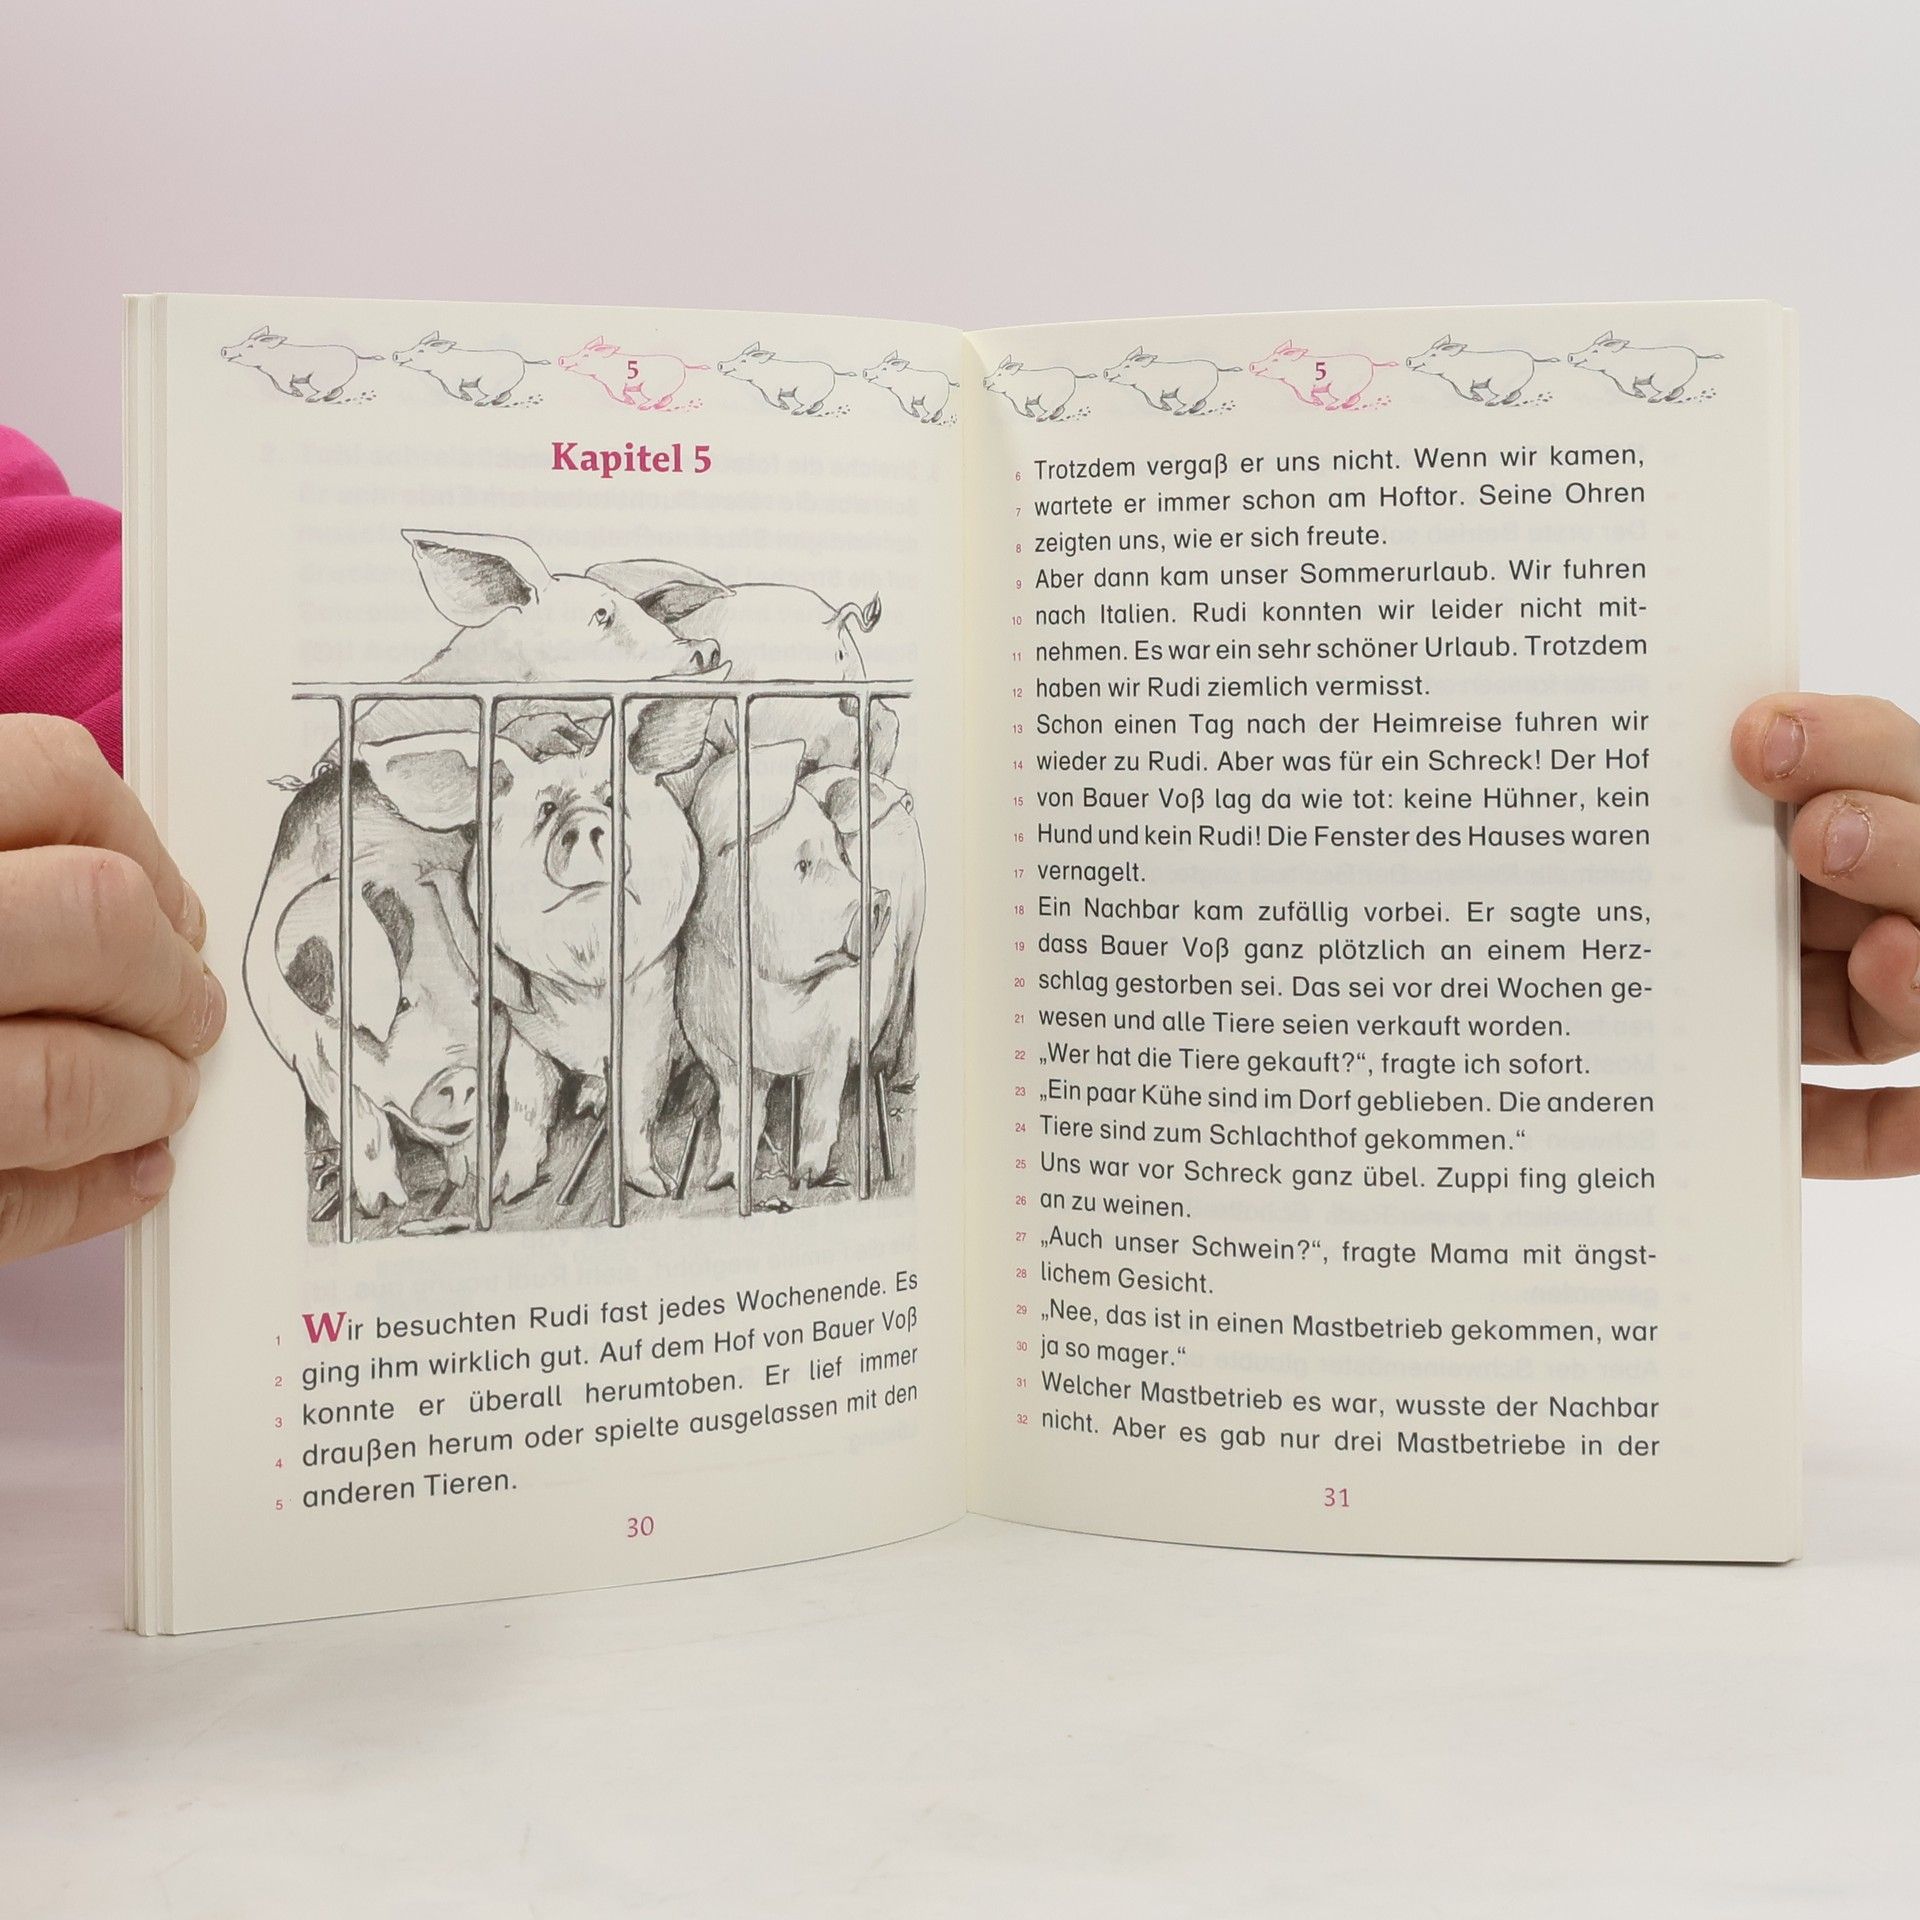 5
Kapitel 5
1 Wir besuchten Rudi fast jedes Wochenende. Es
2 ging ihm wirklich gut. Auf dem Hof von Bauer Voß
3 konnte er überall herumtoben. Er lief immer
4 draußen herum oder spielte ausgelassen mit den
5 anderen Tieren.
30
5
6 Trotzdem vergaß er uns nicht. Wenn wir kamen,
7 wartete er immer schon am Hoftor. Seine Ohren
8 zeigten uns, wie er sich freute.
9 Aber dann kam unser Sommerurlaub. Wir fuhren
10 nach Italien. Rudi konnten wir leider nicht mit-
11 nehmen. Es war ein sehr schöner Urlaub. Trotzdem
12 haben wir Rudi ziemlich vermisst.
13 Schon einen Tag nach der Heimreise fuhren wir
14 wieder zu Rudi. Aber was für ein Schreck! Der Hof
15 von Bauer Voß lag da wie tot: keine Hühner, kein
16 Hund und kein Rudi! Die Fenster des Hauses waren
17 vernagelt.
18 Ein Nachbar kam zufällig vorbei. Er sagte uns,
19 dass Bauer Voß ganz plötzlich an einem Herz-
20 schlag gestorben sei. Das sei vor drei Wochen ge-
21 wesen und alle Tiere seien verkauft worden.
22 „Wer hat die Tiere gekauft?“, fragte ich sofort.
23 „Ein paar Kühe sind im Dorf geblieben. Die anderen
24 Tiere sind zum Schlachthof gekommen.“
25 Uns war vor Schreck ganz übel. Zuppi fing gleich
26 an zu weinen.
27 „Auch unser Schwein?“, fragte Mama mit ängst-
28 lichem Gesicht.
29 „Nee, das ist in einen Mastbetrieb gekommen, war
30 ja so mager.“
31 Welcher Mastbetrieb es war, wusste der Nachbar
32 nicht. Aber es gab nur drei Mastbetriebe in der
31